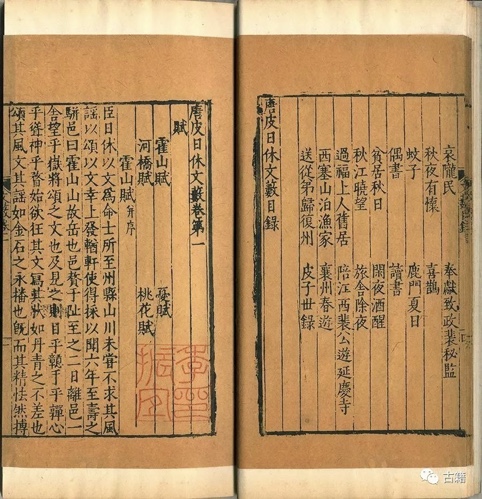 哀隴民　奉獻致政裴秘監
秋夜有懷　喜鵲
蚊子　鹿門夏日
偶書　讀書
貧居秋日　閑夜酒醒
秋江曉望　旅舍除夜
過福上人舊居　陪江西裴公遊延慶寺
西塞山泊漁家　襄州春遊
送從弟歸復州　皮子世錄
唐皮日休文藪目錄
唐皮日休文藪卷第一
賦
霍山賦　憂賦
河橋賦　桃花賦
霍山賦并序
臣日休以文為命士所至州縣山川未嘗不求其風
謠以頌以文幸上發輶軒使得採以聞六年至壽之
駢邑曰霍山山故岳也邑贅于趾至之二日離邑一
舍望乎嶽將頌之文也及見之則目乎手乎心
乎神乎瞀始欲狂其文寫其狀如丹青之不差也
頌其風文其謠如金石之永播也既而其精怯然搏
古籍